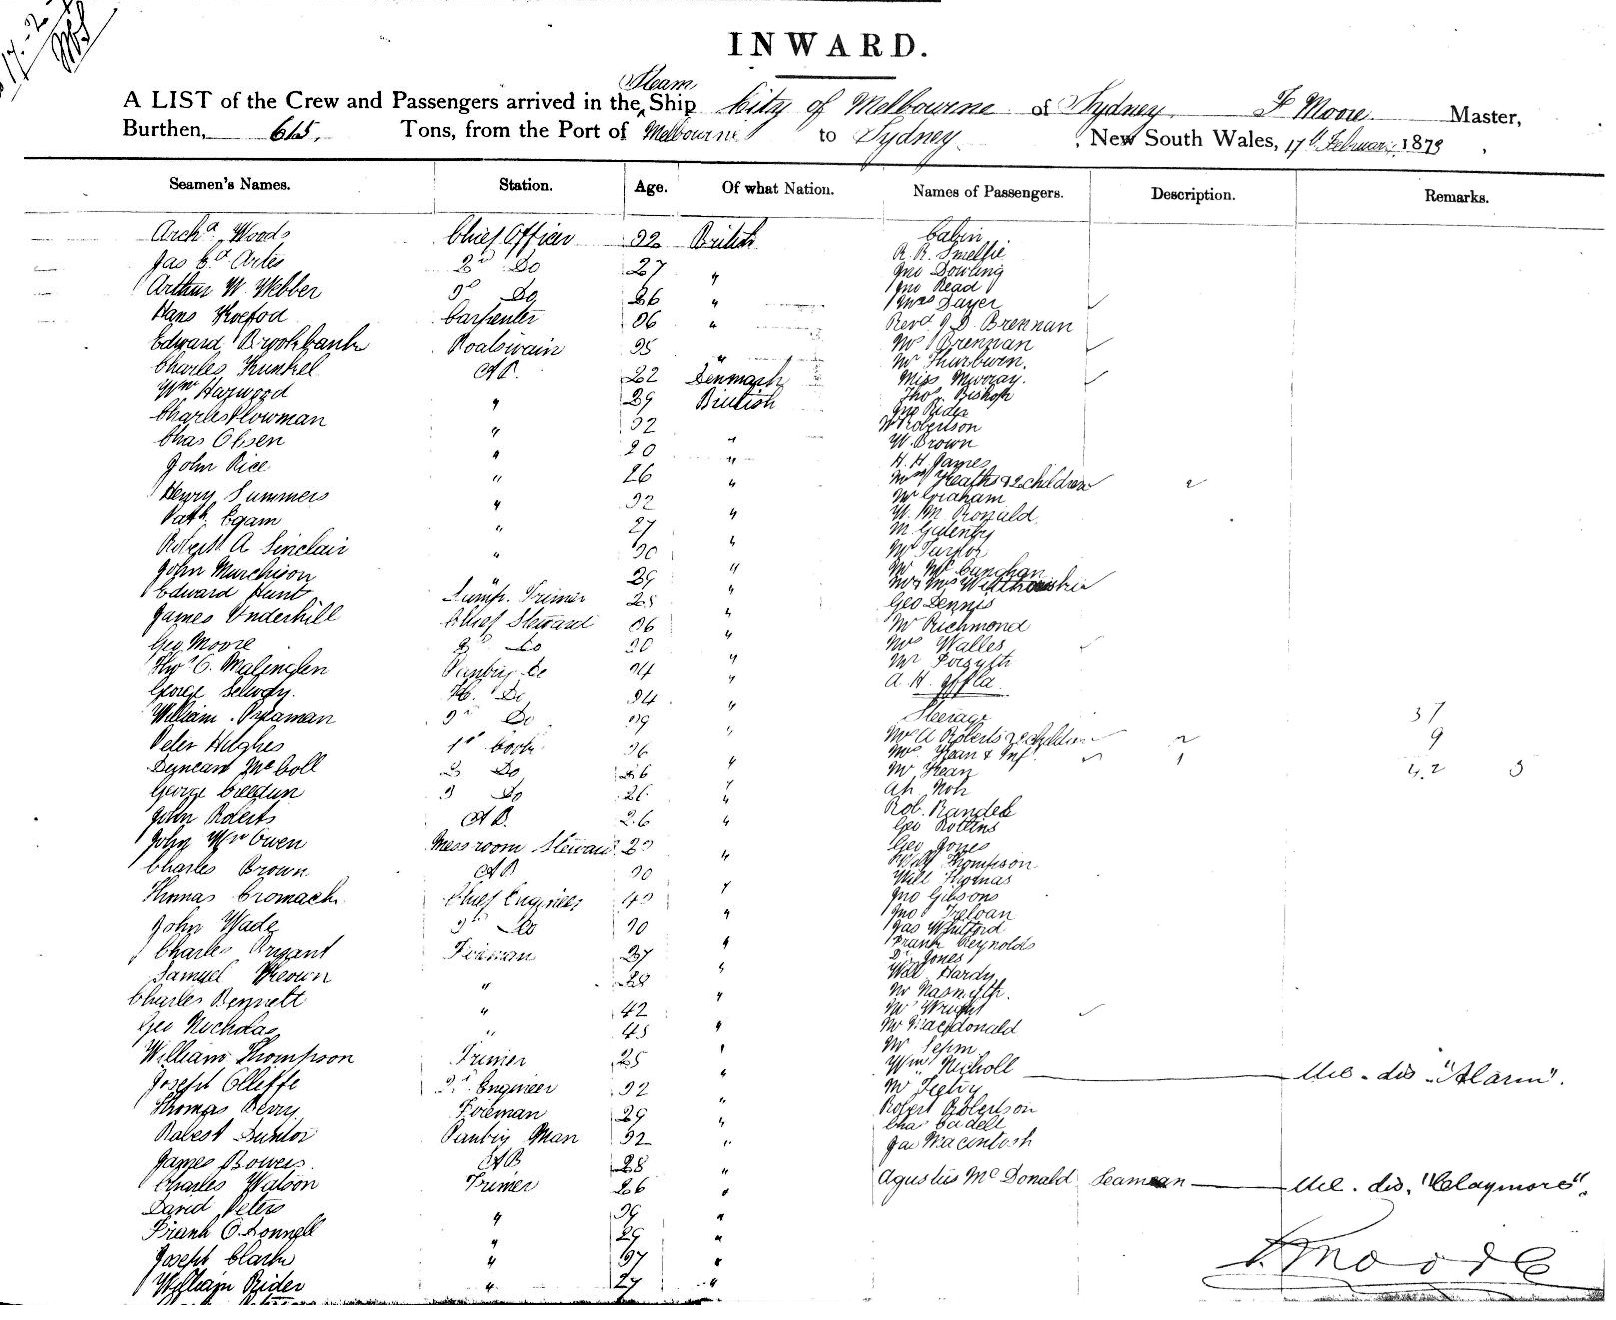 17-2-
INWARD.
Steam
A LIST of the Crew and Passengers arrived in the Ship City of Melbourne of Sydney F Moore Master,
Burthen, 615, Tons, from the Port of Melbourne to Sydney, New South Wales, 17th February 1879,
Seamen's Names. Station. Age. Of what Nation. Names of Passengers. Description. Remarks.
Archd Woods Chief Officer 32 British Cabin
R. R. Smellie
Jas Artes 2nd Do 27 " Jno Dowling
Arthur W. Webber 3rd Do 26 " Jno Read
Mrs Sayer
Hans Carpenter 36 " Revd J D Brennan
Edward Brookbank Boatswain 35 " Mrs Brennan
Mr Thurburn
Charles Kunkel AB. 22 Denmark Miss Murray.
Wm Harwood " 29 British Thos Bishop
Charles Plowman " 32 Jno Rider
W Robertson
Chas Olsen " 20 " W. Brown
John Rice " 26 " H. H. James
Mrs Heath & 2 children 2
Henry Summers " 32 " Mr Graham
Patk Egam " 27 " W. M. Ronald
M.
Robert A Sinclair " 30 " Mr Taylor
John Murchison " 29 " Mr Mc
Mr & Mrs
Edward Hunt Lamp. Trimer 25 " Geo Dennis
James Underhill Chief Steward 36 " Mr Richmond
Geo Moore 2nd Do 30 " Mrs Walles
Thos C. Pantry Do 24 " Mr Forsyth
George Selwdy. Do 34 " A. H.
William 3rd Do 39 " Steerage 37
Peter Hughes 1st Cook 36 Mrs A Roberts 2 children 2 9
Mrs Frean & Inf 1
Duncan McColl 2 Do 26 " Mr Frean 42 3
George Creedun 3 Do 26 " Ah Noh
John Roberts AB. 26 " Rob. Randele
Geo Rollins
John Mc Owen Messroom Steward " Geo Jones
Thompson
Charles Brown AB 30 Will Thomas
Thomas Cromack Chief Engineer 40 " Jno Gibsons
Jno Treloan
John Wade 3rd Do 30 " Jas Whitford
Charles Bryant Fireman 37 " Frank Reynolds
D. Jones
Samuel Keown " 28 " Will Hardy
Charles Bennett " 42 " Mr Nasmyth.
Mr Wright
Geo Nicholas " 45 " Mr Macdonald
William Thompson Trimer 25 " Mr
Wm Nicholl dis "Alarm".
Joseph Olliffe 2nd Engineer 32 " Mr
Thomas Berry Foreman 29 " Robert Robertson
Chas Cadell
Robert Dunlor Pantry Man 32 " Jas Macintosh
James Bowers. AB 28 "
Charles Watson Trimer 26 " Agustus McDonald Seaman dis. "Claymore".
David Peters " 39 "
Frank O.Donnell " 29 "
Joseph Clark " 37 "
William Rider " 27 "
F. Moore